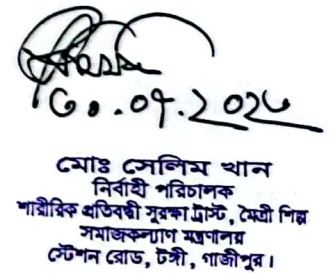 ৩০.০৭.২০২৬
মোঃ সেলিম খান
নির্বাহী পরিচালক
শারীরিক প্রতিবন্ধী সুরক্ষা ট্রাস্ট, মৈত্রী শিল্প
সমাজকল্যাণ মন্ত্রণালয়
স্টেশন রোড, টঙ্গী, গাজীপুর।